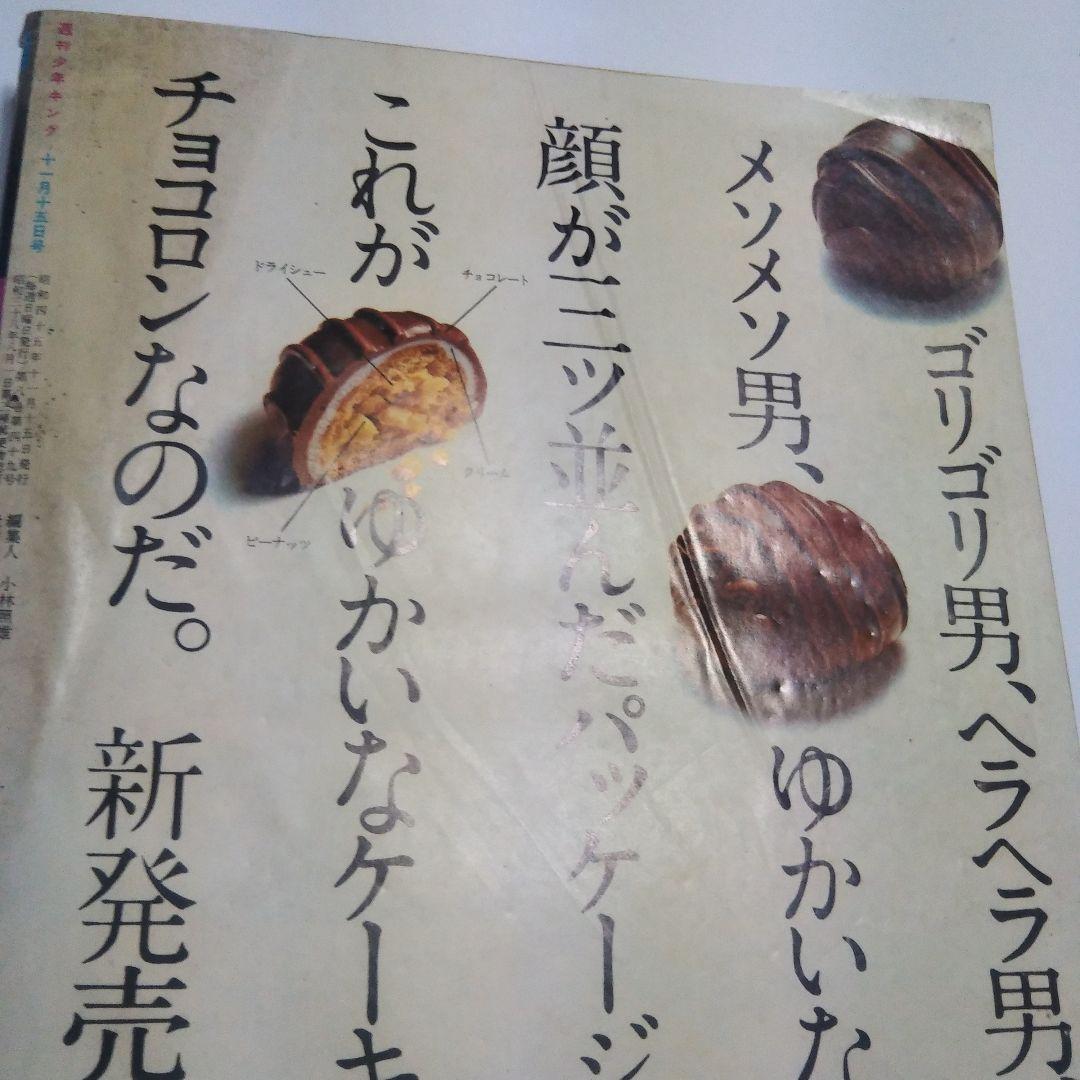 ゴリゴリ男、ヘラヘラ男、
メソメソ男、ゆかいな
顔が三ツ並んだパッケージ
これがゆかいなケーキ
チョコロンなのだ。新発売
ドライシュー
チョコレート
クリーム
ピーナッツ
週刊少年キング 十一月十五日号
昭和四十五年十一月十五日発行
編集人 小林